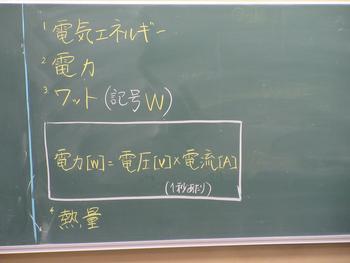 1 電気エネルギー
2 電力
3 ワット(記号W)
電力[W]=電圧[V]×電流[A]
(1秒あたり)
4 熱量